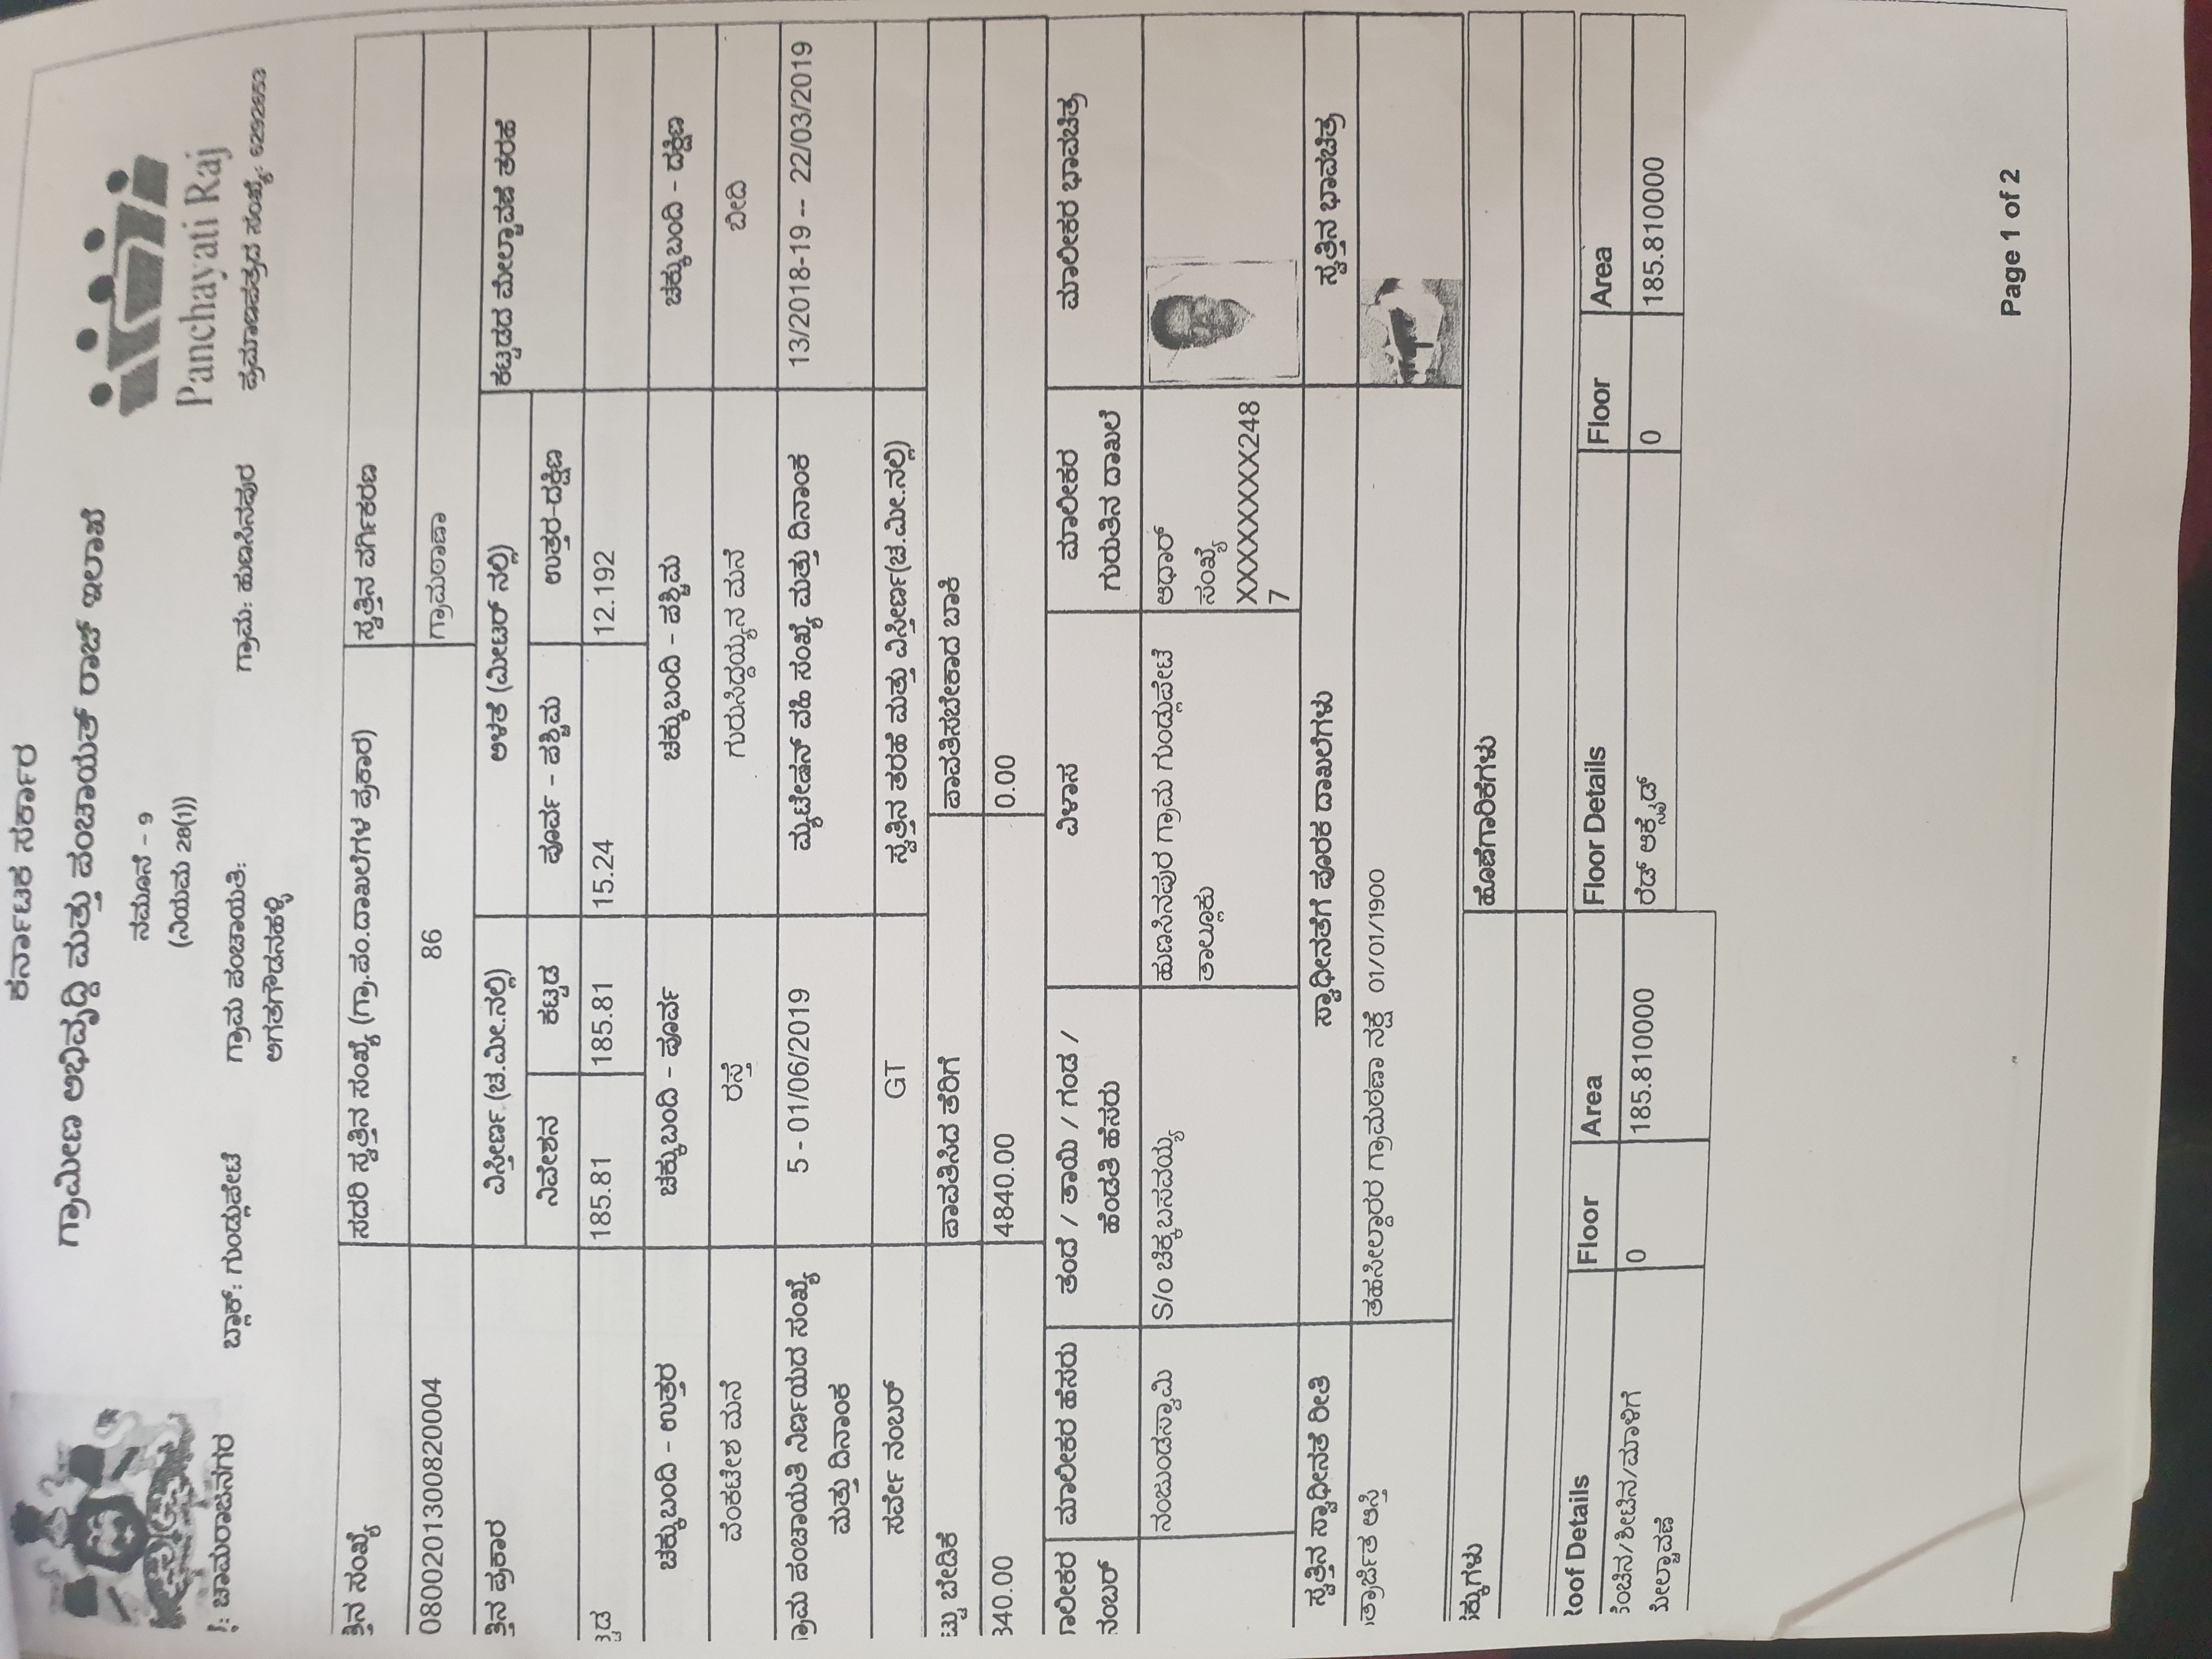 ಕರ್ನಾಟಕ ಸರ್ಕಾರ
ಗ್ರಾಮೀಣ ಅಭಿವೃದ್ಧಿ ಮತ್ತು ಪಂಚಾಯತ್ ರಾಜ್ ಇಲಾಖೆ
Panchayati Raj
ನಮೂನೆ - 9
(ನಿಯಮ 28(1))
ಚಾಮರಾಜನಗರ ಬ್ಲಾಕ್: ಗುಂಡ್ಲುಪೇಟೆ ಗ್ರಾಮ ಪಂಚಾಯತಿ: ಗ್ರಾಮ: ಹುಣಸಿನಪುರ ಪ್ರಮಾಣಪತ್ರದ ಸಂಖ್ಯೆ: 6292653
ಅಗತಗೌಡನಹಳ್ಳಿ
ತ್ತಿನ ಸಂಖ್ಯೆ ಸದರಿ ಸ್ವತ್ತಿನ ಸಂಖ್ಯೆ (ಗ್ರಾ.ಪಂ.ದಾಖಲೆಗಳ ಪ್ರಕಾರ) ಸ್ವತ್ತಿನ ವರ್ಗೀಕರಣ
0800201300820004 86 ಗ್ರಾಮಠಾಣಾ
ತ್ತಿನ ಪ್ರಕಾರ ವಿಸ್ತೀರ್ಣ (ಚ.ಮೀ.ನಲ್ಲಿ) ಅಳತೆ (ಮೀಟರ್ ನಲ್ಲಿ) ಕಟ್ಟಡದ ಮೇಲ್ಚಾವಣಿ ತರಹ
ನಿವೇಶನ ಕಟ್ಟಡ ಪೂರ್ವ - ಪಶ್ಚಿಮ ಉತ್ತರ-ದಕ್ಷಿಣ
185.81 185.81 15.24 12.192
ಚಕ್ಕುಬಂದಿ - ಉತ್ತರ ಚಕ್ಕುಬಂದಿ - ಪೂರ್ವ ಚಕ್ಕುಬಂದಿ - ಪಶ್ಚಿಮ ಚಕ್ಕುಬಂದಿ - ದಕ್ಷಿಣ
ವೆಂಕಟೇಶ ಮನೆ ರಸ್ತೆ ಗುರುಸಿದ್ದಯ್ಯನ ಮನೆ ಬೀದಿ
ಗ್ರಾಮ ಪಂಚಾಯತಿ ನಿರ್ಣಯದ ಸಂಖ್ಯೆ 5 - 01/06/2019 ಮ್ಯುಟೇಷನ್ ವಹಿ ಸಂಖ್ಯೆ ಮತ್ತು ದಿನಾಂಕ 13/2018-19 -- 22/03/2019
ಮತ್ತು ದಿನಾಂಕ
ಸರ್ವೇ ನಂಬರ್ GT ಸ್ವತ್ತಿನ ತರಹೆ ಮತ್ತು ವಿಸ್ತೀರ್ಣ(ಚ.ಮೀ.ನಲ್ಲಿ)
ಟ್ಟು ಬೇಡಿಕೆ ಪಾವತಿಸಿದ ತೆರಿಗೆ ಪಾವತಿಸಬೇಕಾದ ಬಾಕಿ
340.00 4840.00 0.00
ಾಲೀಕರ ಮಾಲೀಕರ ಹೆಸರು ತಂದೆ / ತಾಯಿ / ಗಂಡ / ವಿಳಾಸ ಮಾಲೀಕರ ಮಾಲೀಕರ ಭಾವಚಿತ್ರ
ನಂಬರ್ ಹೆಂಡತಿ ಹೆಸರು ಗುರುತಿನ ದಾಖಲೆ
ನಂಜುಂಡಸ್ವಾಮಿ S/O ಚಿಕ್ಕಬಸವಯ್ಯ ಹುಣಸಿನಪುರ ಗ್ರಾಮ ಗುಂಡ್ಲುಪೇಟೆ ಆಧಾರ್
ತಾಲ್ಲೂಕು ಸಂಖ್ಯೆ
XXXXXXXXX248
7
ಸ್ವತ್ತಿನ ಸ್ವಾಧೀನತೆ ರೀತಿ ಸ್ವಾಧೀನತೆಗೆ ಪೂರಕ ದಾಖಲೆಗಳು ಸ್ವತ್ತಿನ ಭಾವಚಿತ್ರ
ತ್ರಾರ್ಜಿತ ಆಸ್ತಿ ತಹಸೀಲ್ದಾರರ ಗ್ರಾಮಠಾಣಾ ನಕ್ಷೆ 01/01/1900
ಕ್ಕುಗಳು ಹೊಣೆಗಾರಿಕೆಗಳು
Roof Details Floor Area Floor Details Floor Area
ಹೆಂಚಿನ/ಶೀಟಿನ/ಮಾಳಿಗೆ 0 185.810000 ರೆಡ್ ಆಕ್ಸೈಡ್ 0 185.810000
ಮೇಲ್ಚಾವಣಿ
Page 1 of 2